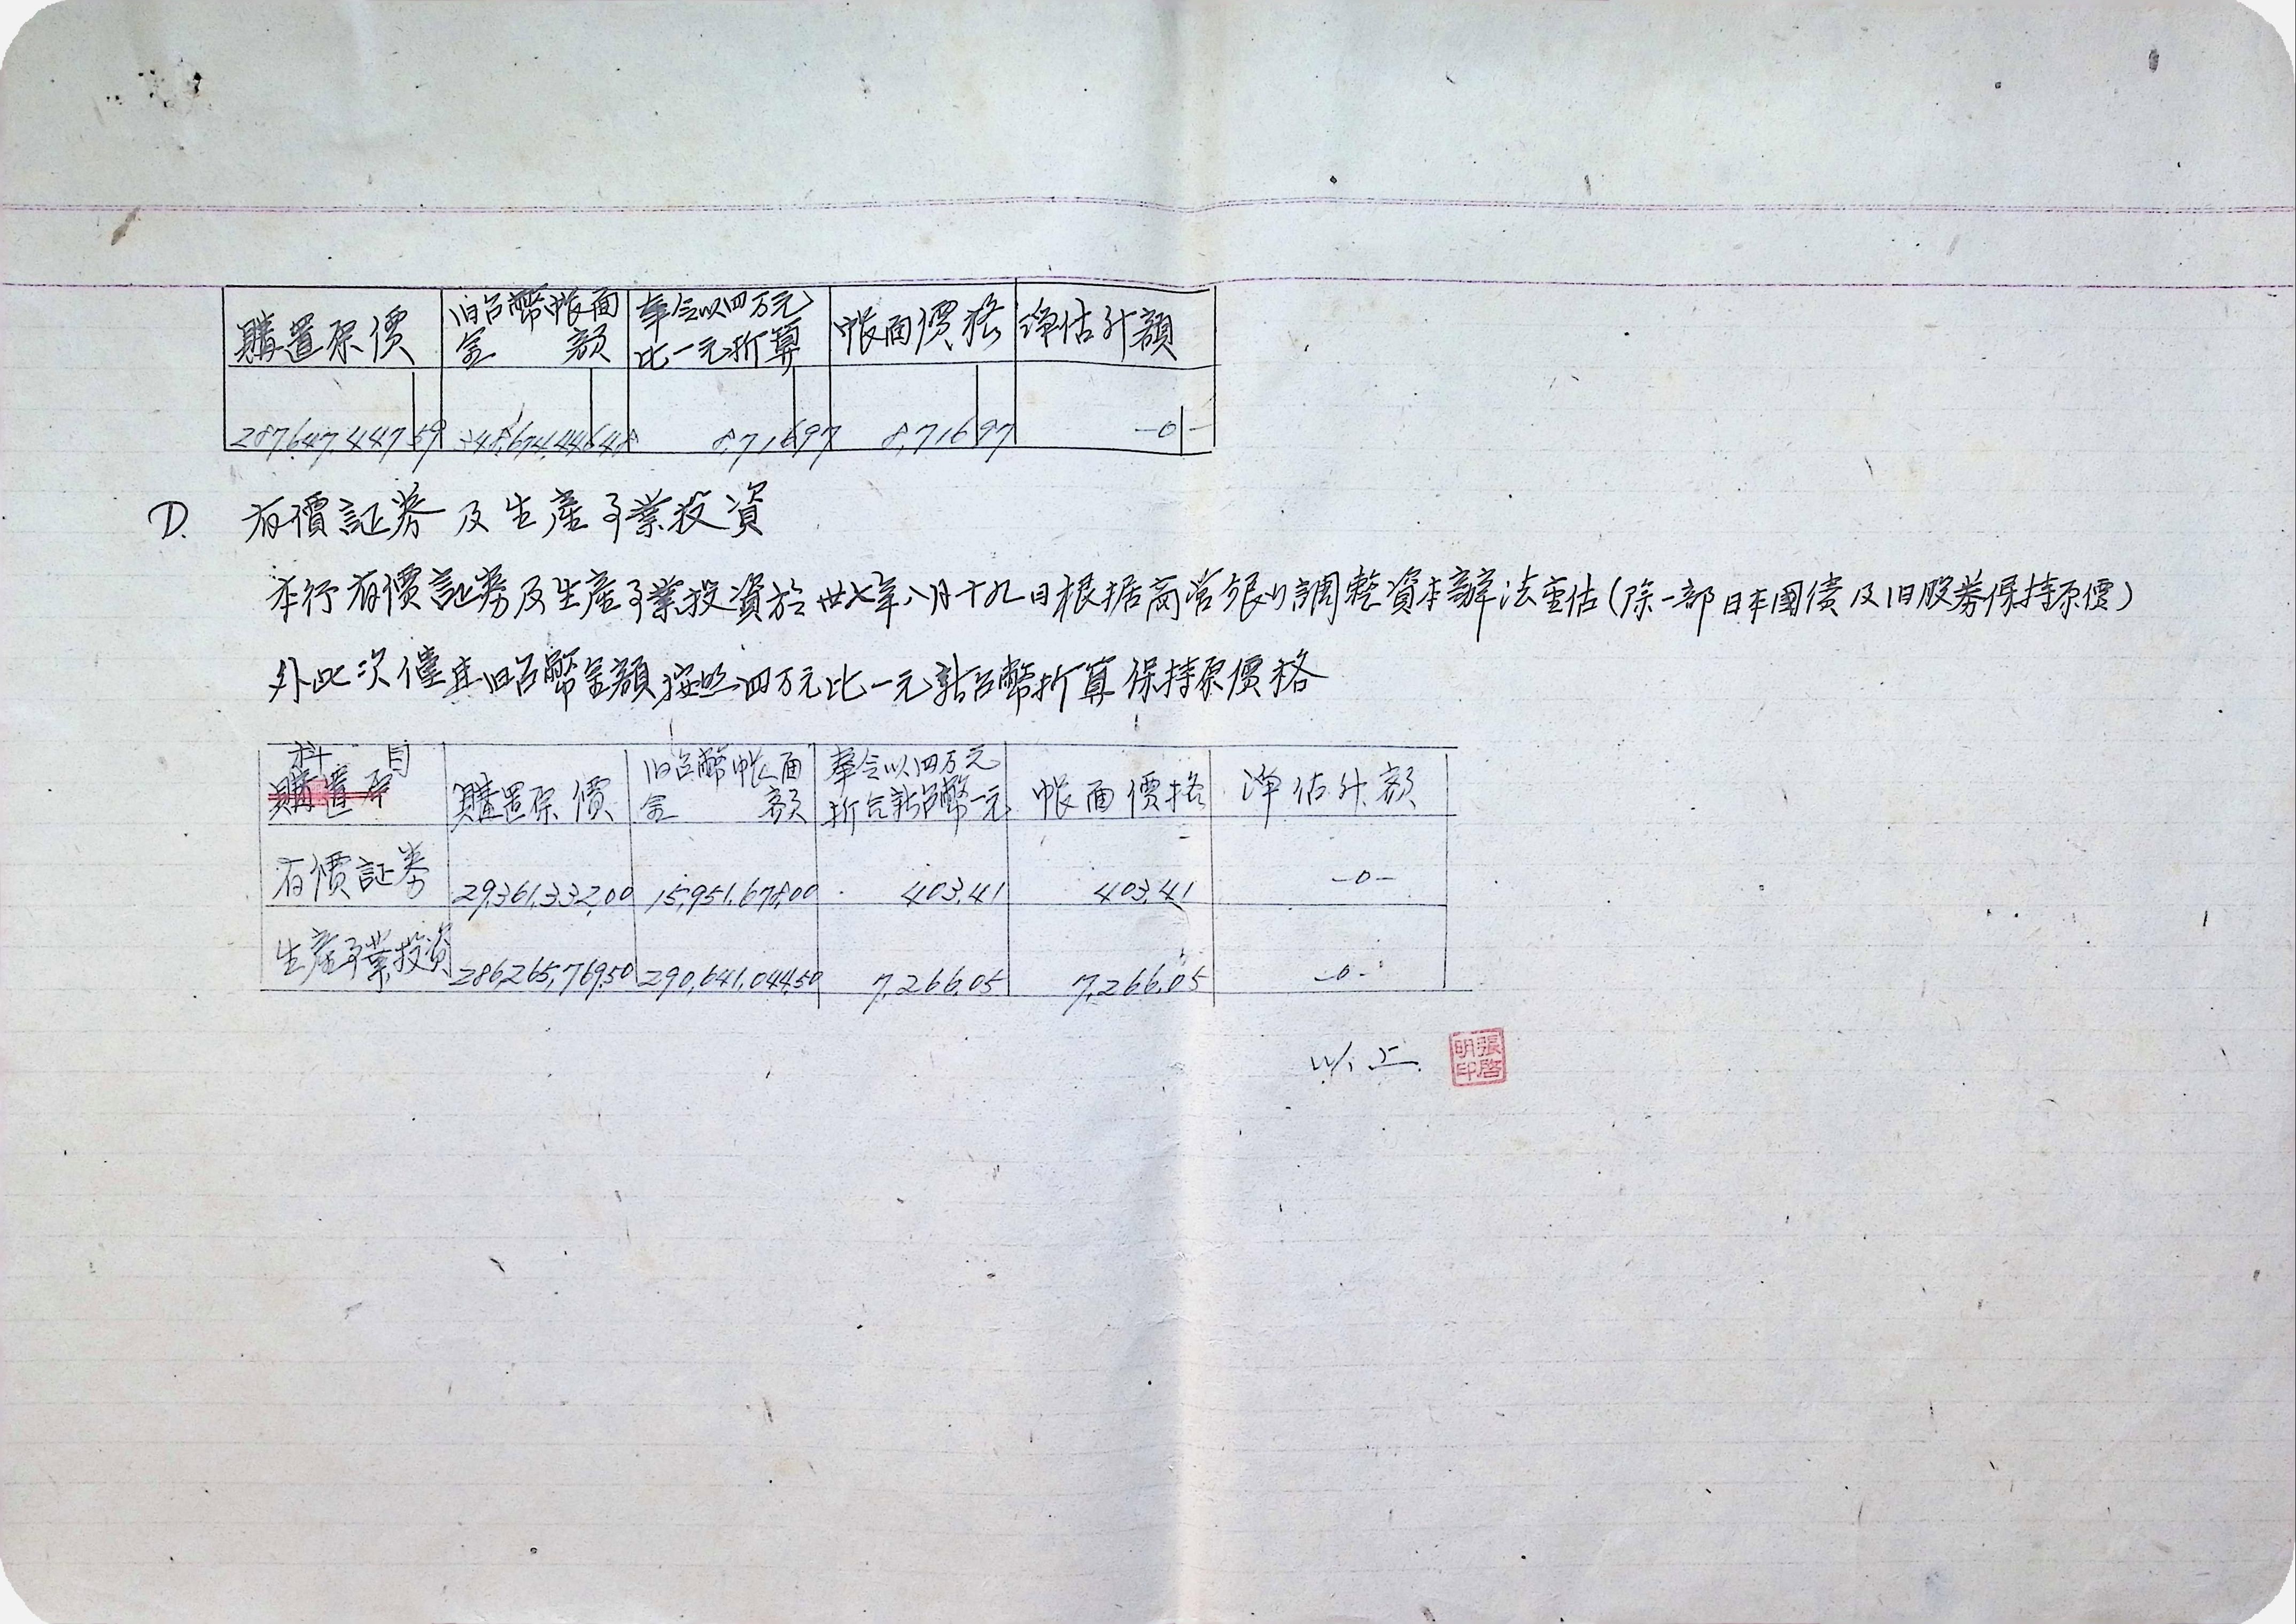 購置原價 旧台幣帳面金額 奉令以四万元比一元折算 帳面價格 淨估計額
287,647,447 59 348,674,446 48 8,716 97 8,716 97 -0- -
D. 有價証券及生產事業投資
本行有價証券及生產事業投資於卅七年八月十九日根据商营銀行調整資本辦法重估(除一部日本國債及旧股券保持原價)
外此次僅其旧台幣金額按照四万元比一元新台幣折算保持原價格
科目 購置原價 旧台幣帳面金額 奉令以四万元折合新台幣一元 帳面價格 淨估計額
購置原
有價証券 29,361,332.00 15,951,678.00 403.41 403.41 -0-
生產事業投資 286,265,769.50 290,641,044.50 7,266.05 7,266.05 -0-
以上
張啓明印